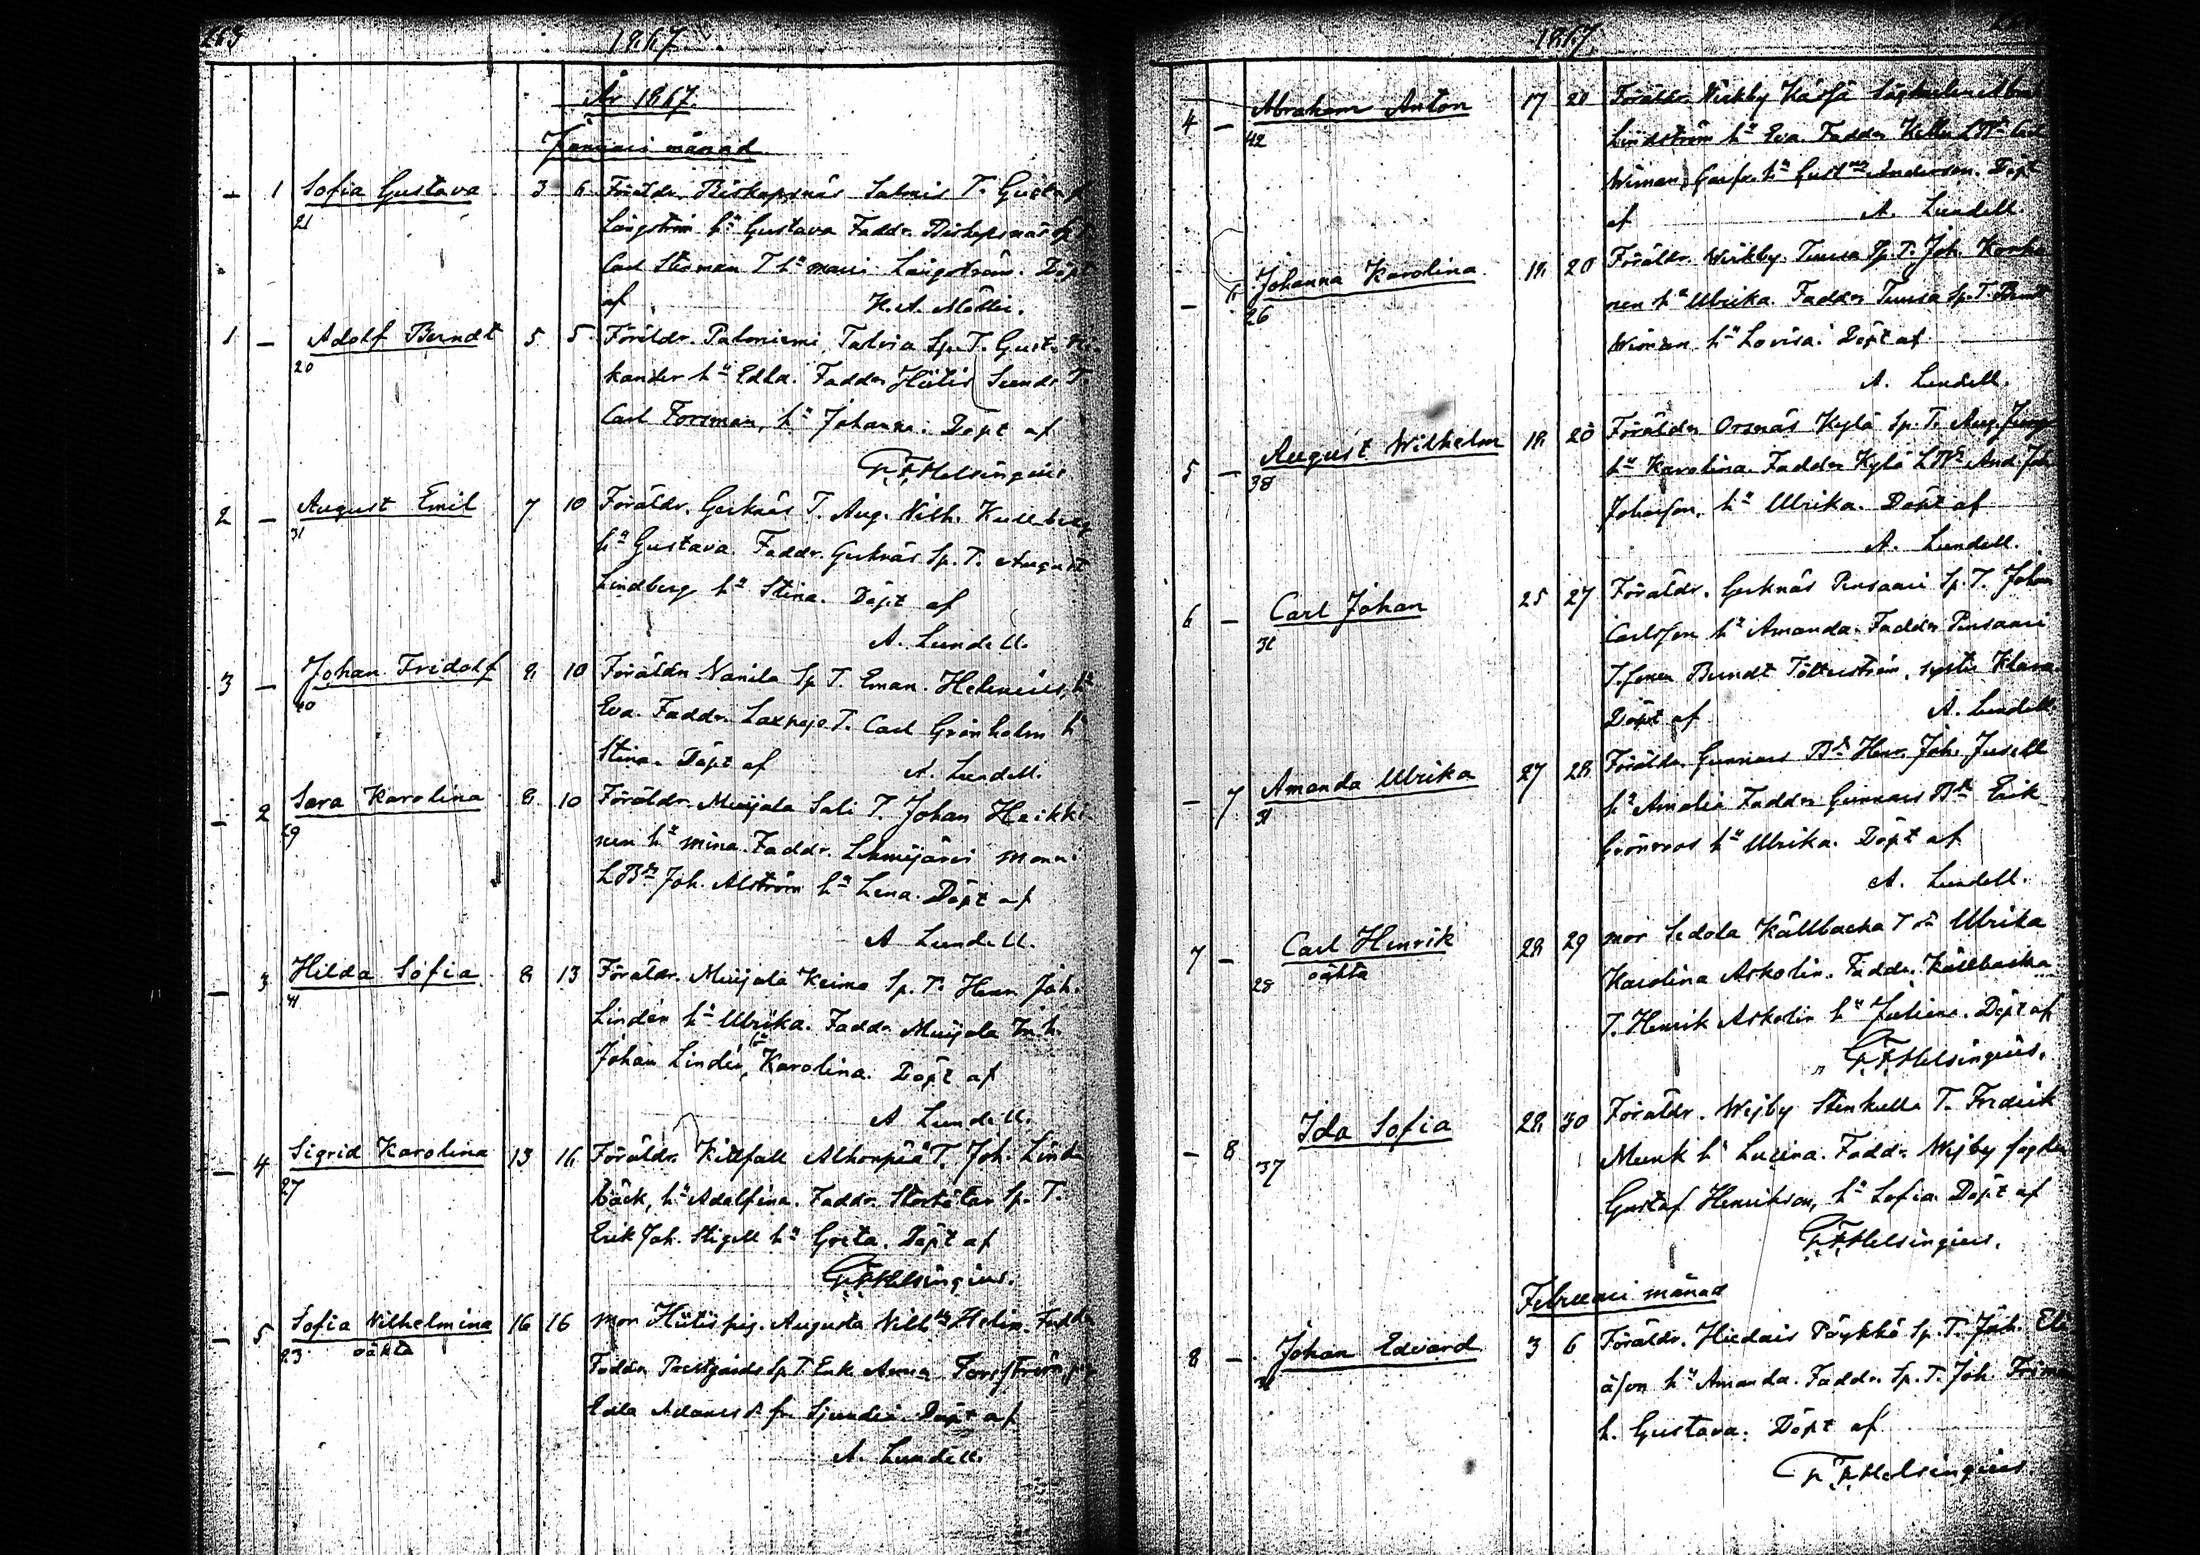 1867.
År 1867.
Januari månad
– 1 Sofia Gustava 3 6 Föräldr. Biskopsnäs Salmis T. Gustaf
21 Långström h:u Gustava Faddr. Biskopsnäs Sp.
Carl T h:u Långström. Döpt
af K. A. Mölli.
1 – Adolf Berndt 5 5 Föräldr. Paloniemi, Talvia Sp. T. Gust. Ni-
20 kander h:u Edla. Faddr Hiitis Sunds T.
Carl Forsman, h:u Johanna. Döpt af
F. Helsingius
2 – August Emil 7 10 Föräldr. Gerknäs T. Aug. Wilh. Kullberg
31 h:u Gustava. Faddr. Gerknäs Sp. T. August
Lindberg h:u Stina. Döpt af
A. Lundell.
3 – Johan Fridolf 8 10 Föräldr. Nanila Sp T. Eman. Helenius, h:u
40 Eva. Faddr. Laxpojo T. Carl Grönholm h:u
Stina. Döpt af A. Lundell.
– 2 Sara Karolina 8 10 Föräldr. Muijala Sali T. Johan Heikki-
29 nen h:u Mina. Faddr. Lehmijärvi
LB:n Joh. Alström h:u Lena. Döpt af
A Lundell.
– 3 Hilda Sofia 8 13 Föräldr. Muijala Keima Sp. T. Henr. Joh.
41 Lindén h:u Ulrika. Faddr Muijala Inh.
Johan Lindén, Karolina. Döpt af
A Lundell.
– 4 Sigrid Karolina 13 16 Föräldr. Kittfall Alhonpää T. Joh. Lind-
27 bäck, h:u Adolfina. Faddr. Sp. T.
Erik Joh. Stigell h:u Greta. Döpt af
F. Helsingius.
– 5 Sofia Wilhelmina 16 16 Mor Hiitis pig. Augusta Wilh:na Helin. Faddr
23 oäkta Faddr. Sp. T. Enk. Anna Forsström,
Edla fr. Sjundeå. Döpt af
A. Lundell.
1867.
4 – Abraham Anton 17 20 Föräldr. Wirkby
42 Lindström h:u Eva. Faddr LB:n
Wiman, h:u Gust:va Anderson. Döpt
af A. Lundell.
– 6 Johanna Karolina 18 20 Föräldr. Wirkby. Tuusa Sp. T. Joh. Korho-
26 nen h:u Ulrika. Faddr Tuusa Sp. T. Berndt
Wiman h:u Lovisa. Döpt af
A. Lundell.
5 – August Wilhelm 18 20 Föräldr Orsnäs Kylä Sp. T. Aug.
38 h:u Karolina. Faddr Kylä LB:n And. Joh
Johansson, h:u Ulrika. Döpt af
A. Lundell.
6 – Carl Johan 25 27 Föräldr. Gerknäs Pensaari Sp. T. Johan
31 Carlsson h:u Amanda. Faddr Pensaari
T. sonen Berndt Tötterström, syster Klara.
Döpt af A. Lundell
– 7 Amanda Ulrika 27 28 Föräldr. Gunnars B:n Henr. Joh. Jusell
31 h:u Amalia Faddr Gunnars B:n Erik
Grönroos h:u Ulrika. Döpt af
A. Lundell.
7 – Carl Henrik 28 29 Mor Sedola Källbacka T. Ulrika
28 oäkta Karolina Askolin. Faddr. Källbacka
T. Henrik Askolin h:u Juliana. Döpt af
F. Helsingius.
– 8 Ida Sofia 28 30 Föräldr. Wejby Stenkulla T. Fredrik
37 Munk h:u Lucina. Faddr. Wejby
Gustaf Henrikson, h:u Sofia. Döpt af
F. Helsingius.
Februari månad
8 – Johan Edvard 3 6 Föräldr. Hiidais Pöykkö Sp. T. Joh. Eli-
asson h:u Amanda. Faddr. Sp. T. Joh.
h. Gustava. Döpt af
F. Helsingius.